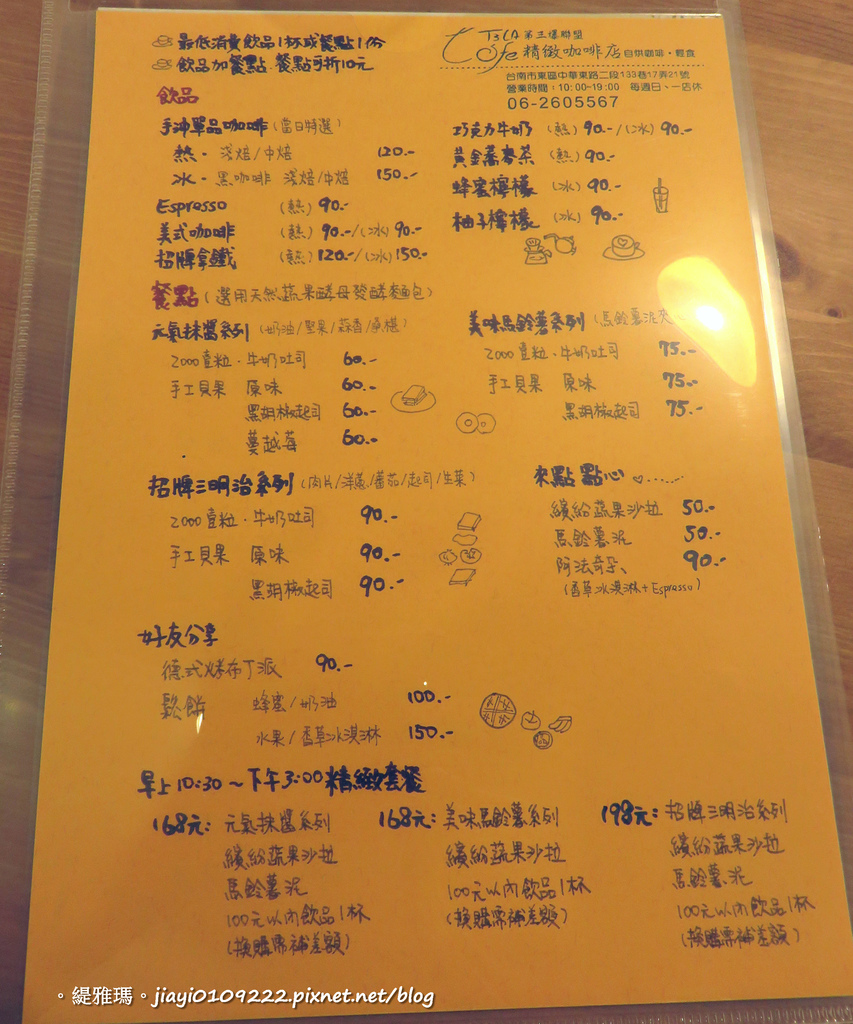 最低消費飲品1杯或餐點1份
飲品加餐點.餐點可折10元
T3CA 第三爆聯盟
Cofe 精緻咖啡店 自烘咖啡·輕食
台南市東區中華東路二段133巷17弄21號
營業時間：10:00~19:00 每週日、一店休
06-2605567
飲品
手沖單品咖啡(當日特選)
熱. 淺焙/中焙 120.-
冰. 黑咖啡 淺焙/中焙 150.-
Espresso (熱) 90.-
美式咖啡 (熱) 90.-/(冰) 90.-
招牌拿鐵 (熱) 120.-/(冰) 150.-
巧克力牛奶 (熱) 90.-/(冰) 90.-
黃金蕎麥茶 (熱) 90.-
蜂蜜檸檬 (冰) 90.-
柚子檸檬 (冰) 90.-
餐點(選用天然蔬果酵母發酵麵包)
元氣抹醬系列(奶油/堅果/蒜香/桑椹)
2000壹粒.牛奶吐司 60.-
手工貝果 原味 60.-
黑胡椒起司 60.-
蔓越莓 60.-
美味馬鈴薯系列(馬鈴薯泥夾
2000壹粒.牛奶吐司 75.-
手工貝果 原味 75.-
黑胡椒起司 75.-
招牌三明治系列(肉片/洋蔥/蕃茄/起司/生菜)
2000壹粒.牛奶吐司 90.-
手工貝果 原味 90.-
黑胡椒起司 90.-
來點點心
繽紛蔬果沙拉 50.-
馬鈴薯泥 50.-
阿法奇朵、 90.-
(香草冰淇淋+Espresso)
好友分享
德式烤布丁派 90.-
鬆餅 蜂蜜/奶油 100.-
水果/香草冰淇淋 150.-
早上10:30~下午3:00精緻套餐
168元: 元氣抹醬系列
繽紛蔬果沙拉
馬鈴薯泥
100元以內飲品1杯
(換購需補差額)
168元: 美味馬鈴薯系列
繽紛蔬果沙拉
100元以內飲品1杯
(換購需補差額)
198元: 招牌三明治系列
繽紛蔬果沙拉
馬鈴薯泥
100元以內飲品1杯
(換購需補差額)
。緹雅瑪。jiayi0109222.pixnet.net/blog